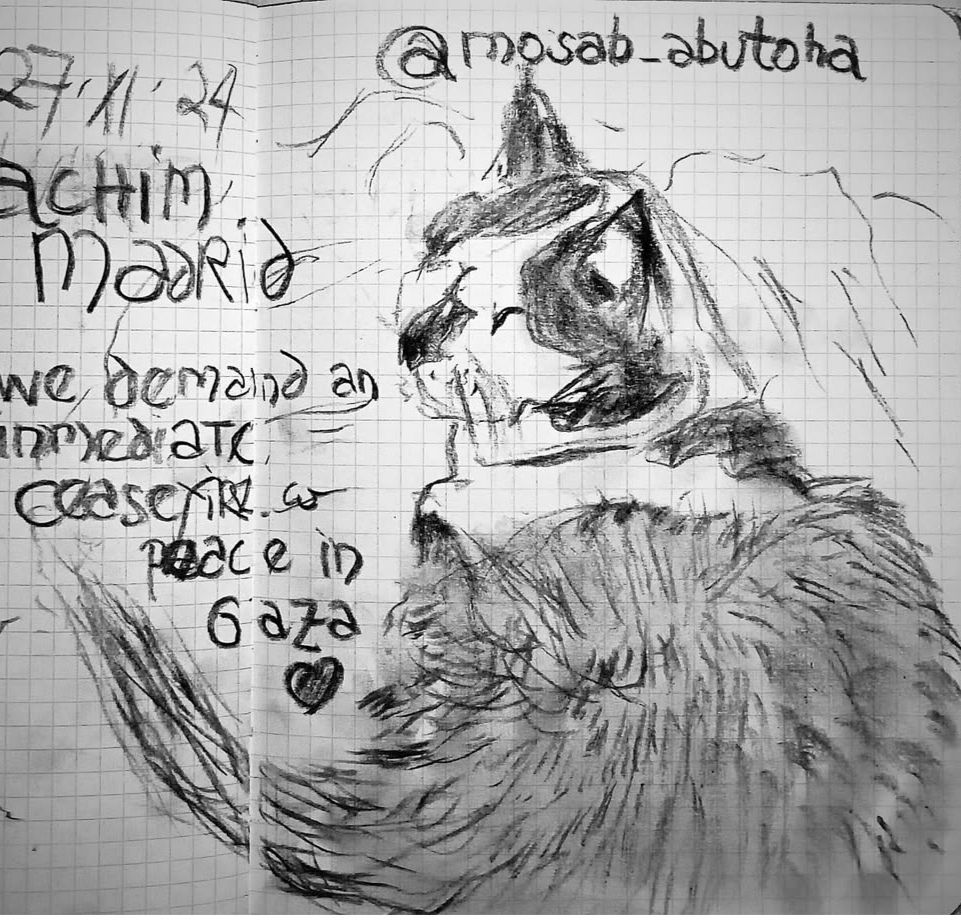 @mosab_abutoha
27·XI·24
achim
Madrid
we demand an
inmediate
ceasefire. or
peace in
Gaza